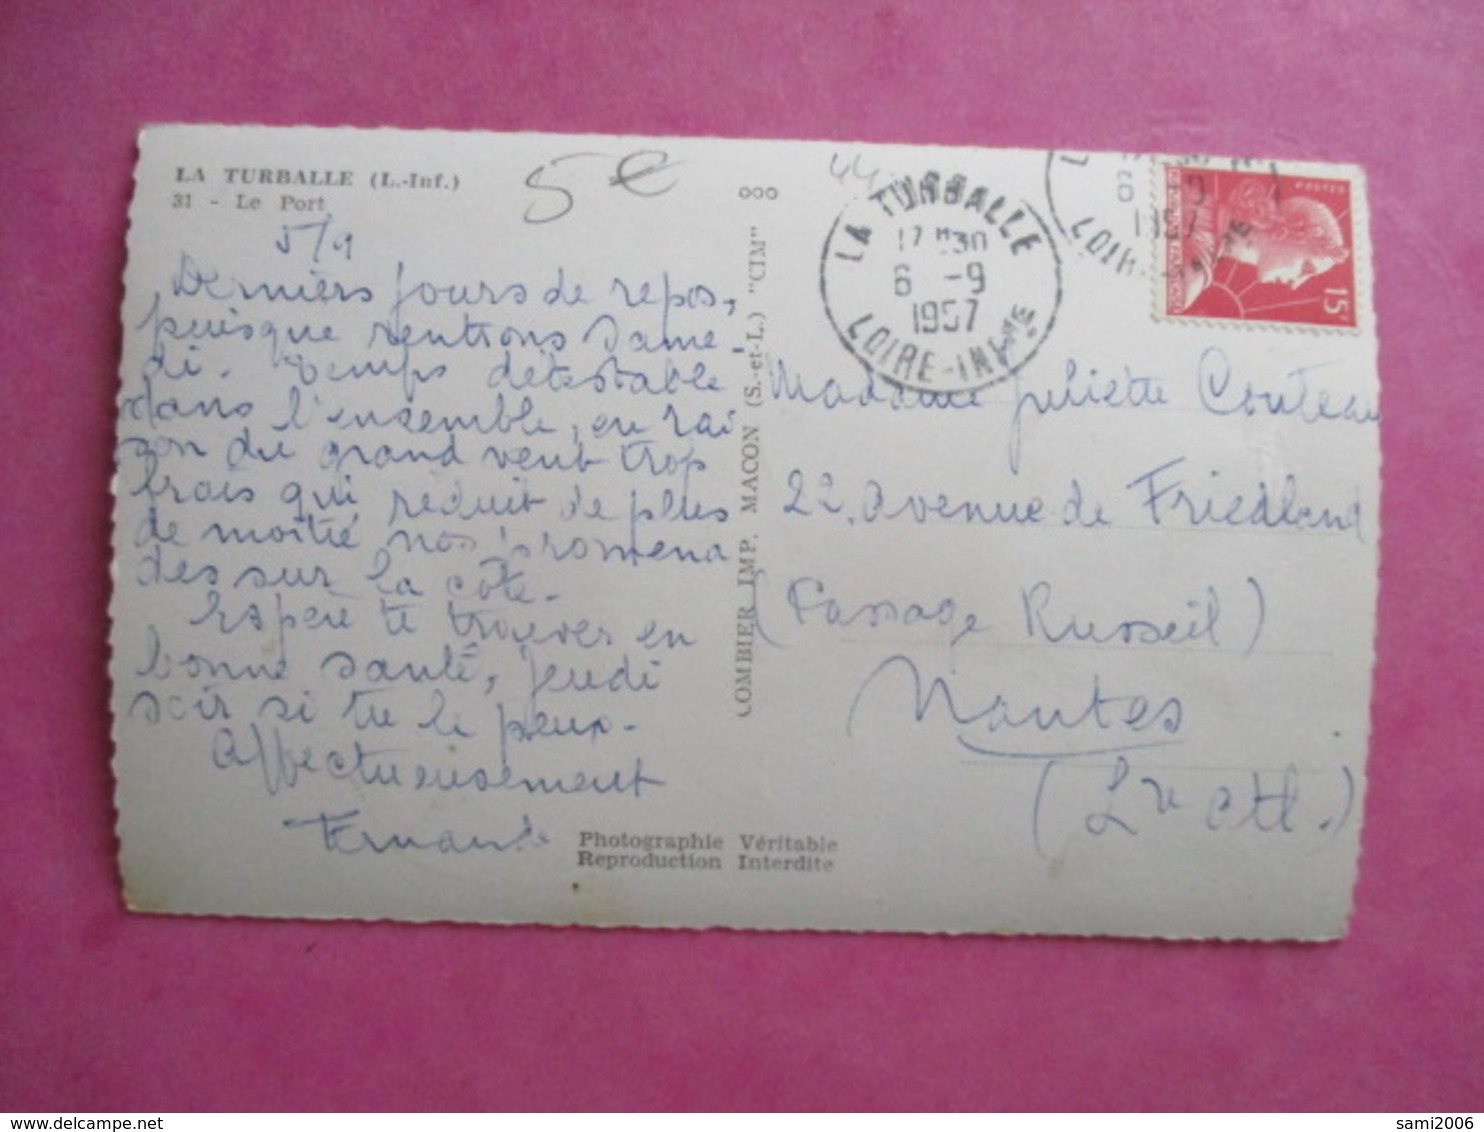 LA TURBALLE (L.-Inf.)
31 - Le Port
5 €
44
5/9
Derniers jours de repos,
puisque rentrons same-
di. Temps détestable
dans l'ensemble, en rai
son du grand vent trop
frais qui réduit de plus
de moitié nos promena
des sur la côte.
Espère te trouver en
bonne santé, jeudi
soir si tu le peux.
Affectueusement
Fernande
Photographie Véritable
Reproduction Interdite
COMBIER IMP. MACON (S.-et-L.) "CIM"
ooo
LA TURBALLE
17 H 30
6 -9
1957
LOIRE-INFRE
6 -9
1957
POSTES
15F
Madame Juliette Couteau
22, Avenue de Friedland
(Passage Russeil)
Nantes
(Lre Atl.)
sami2006